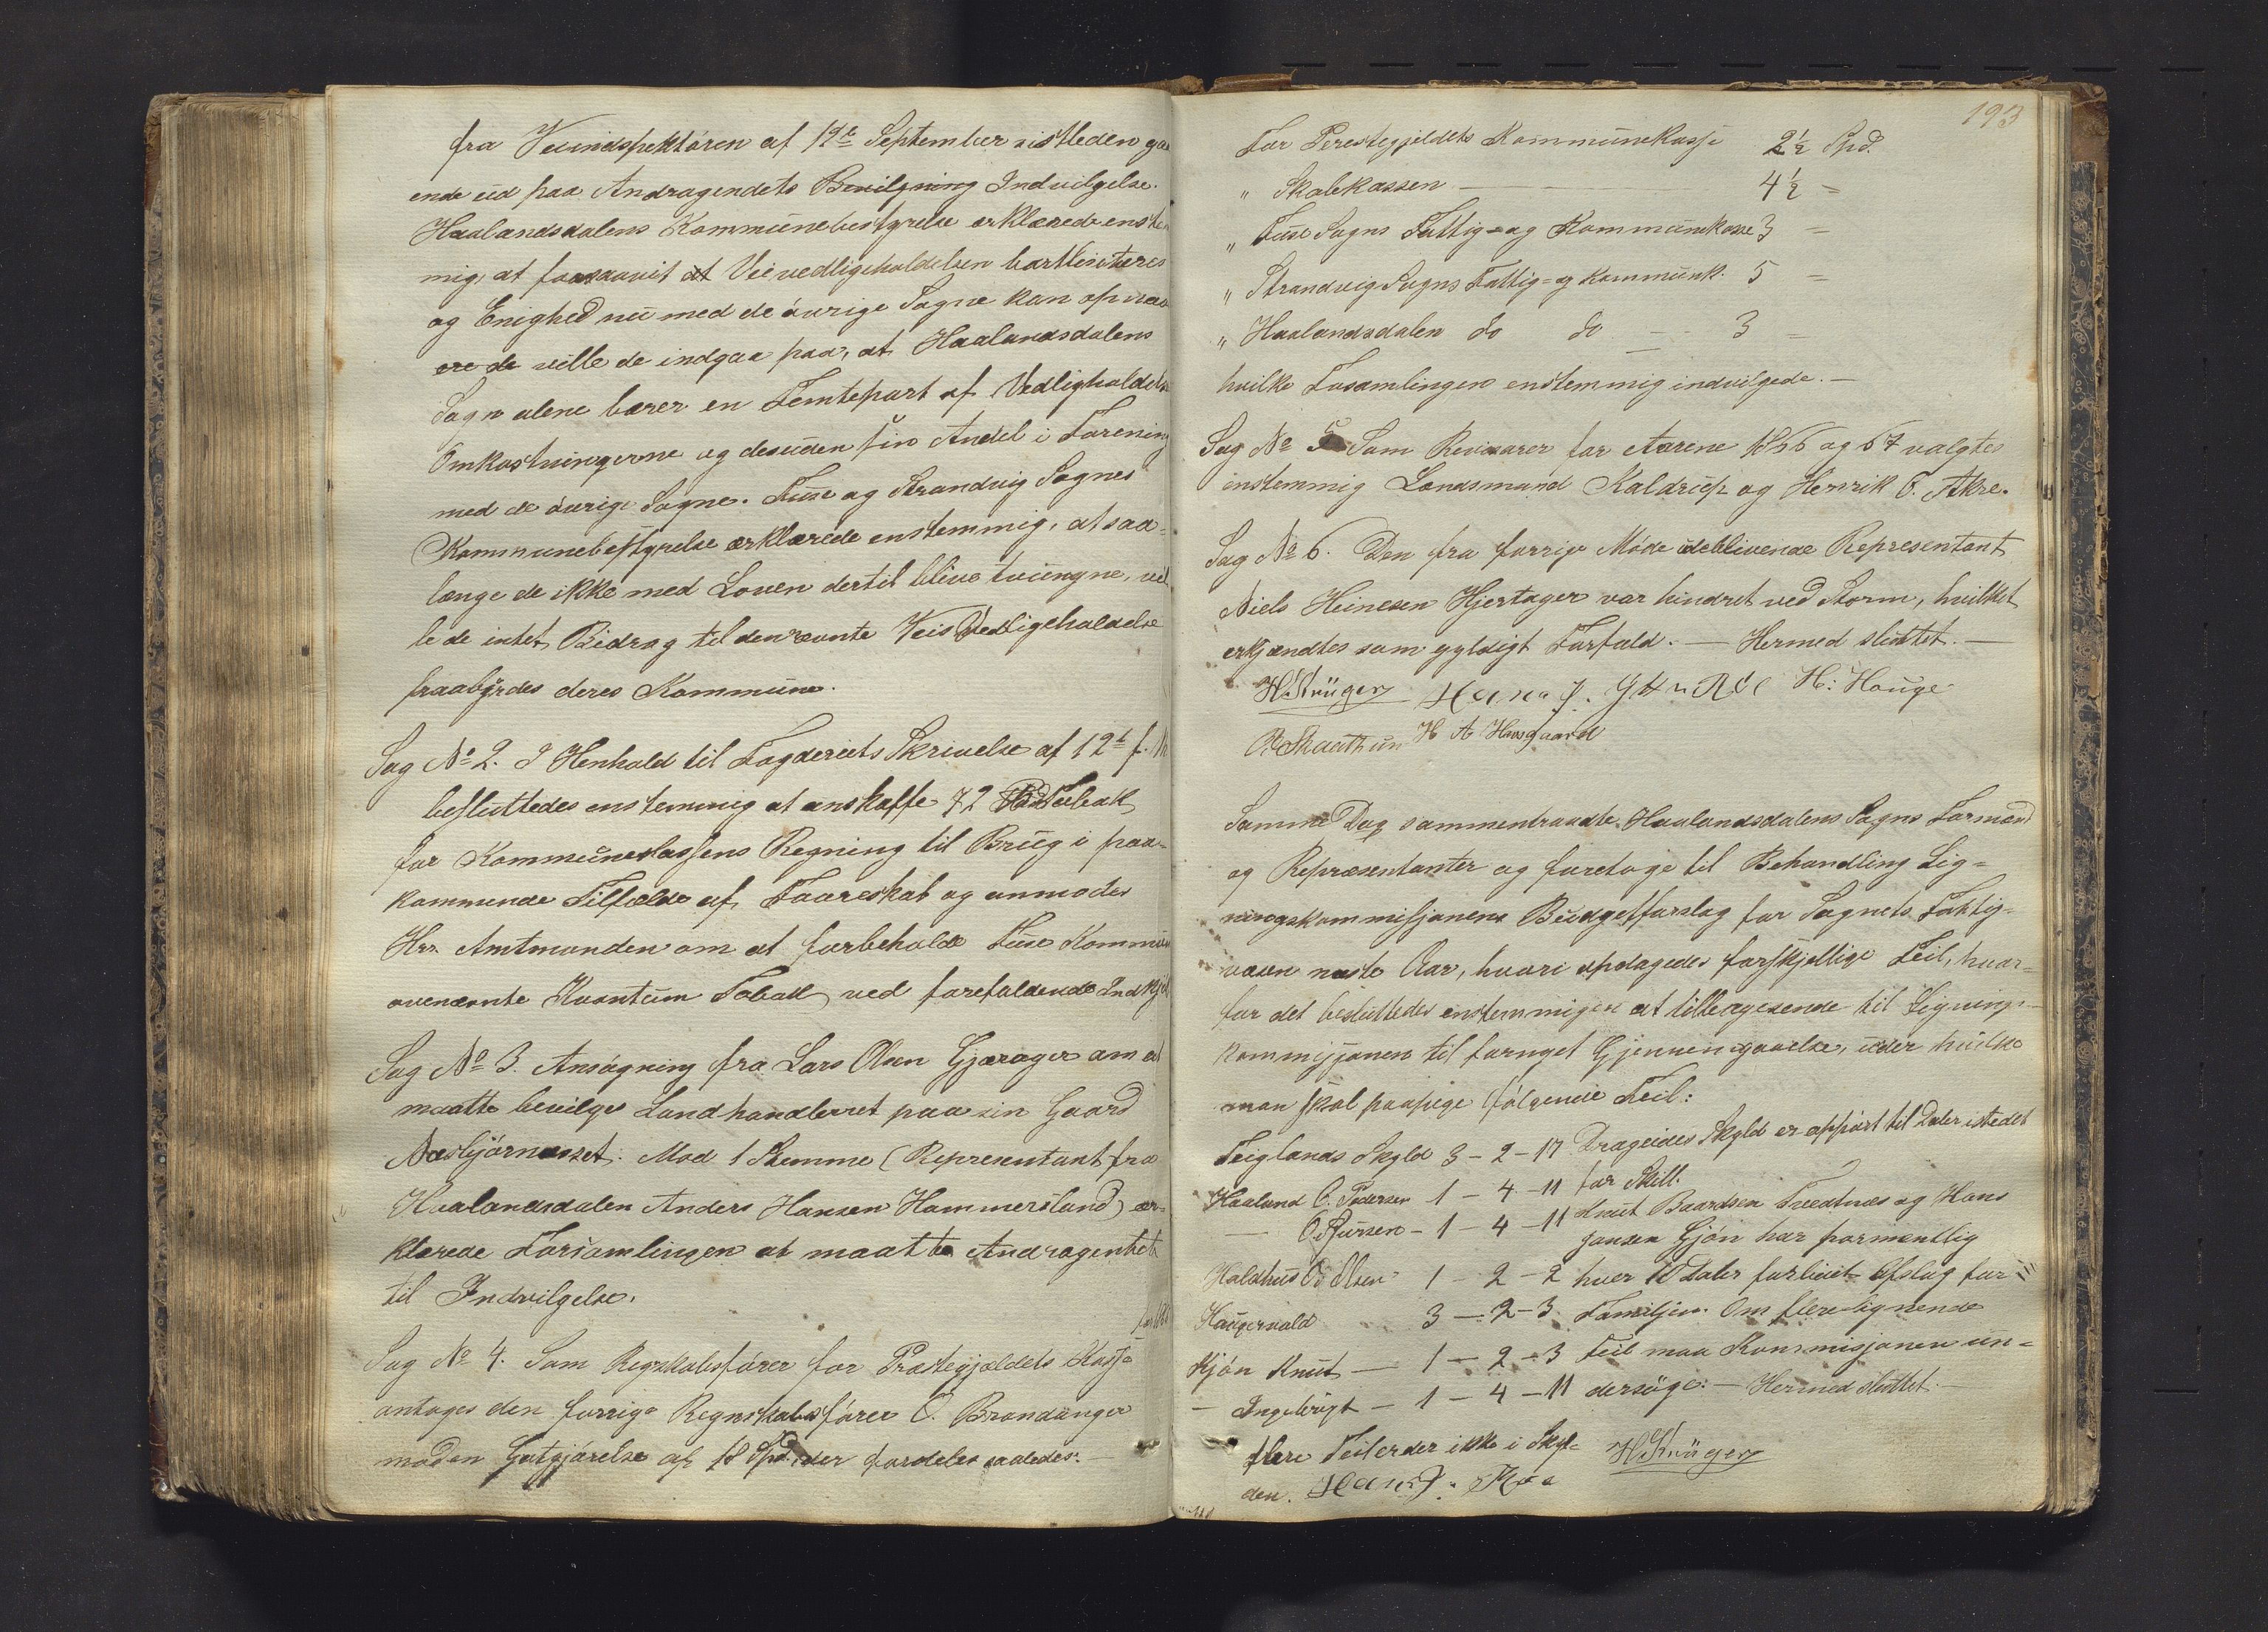 fra Veiindspektören af 12te September sistleden gaa
ende ud paa Andragendets Bevilgning Indvilgelse.
Haalandsdalens Kommunebestyrelse erklærede enstem
mig, at forsaavit at Veivedligeholdelsen bortliciteres
og Enighed nu med de övrige Sogne kan opnaaes
ere de ville de indgaa paa, at Haalandsdalens
Sogn alene bærer en Femtepart af Vedligholdelses
Omkostningerne og desuden sin Andel i Forening
med de övrige Sogne. Fuse og Strandvig Sognes
Kommunebestyrelse erklærede enstemmig, at saa-
længe de ikke med Loven dertil blive tvungne, vil
le de intet Bidrag til den nævnte Veis Vedligeholdelse
paabyrdes deres Kommune.
Sag No 2. I Henhold til Fogderiets Skrivelse af 12te f. M
besluttedes enstemmig at anskaffe 72 Tobak
for Kommunekassens Regning til Brug i paa-
kommende Tilfælde af Faareskab og anmodes
Hrr. Amtmanden om at forbeholde Fuse Kommune
ovennævnte Kvantum Tobak ved forefaldende Indkjøb
Sag No 3. Ansögning fra Lars Olsen Gjærager om at
maatte bevilges Landhandlerret paa sin Gaard
Næsbjörnæsset. Mod 1 Stemme (Representant fra
Haalandsdalen Anders Hansen Hammersland) er-
klærede Forsamlingen at maatte Andragendet
til Indvilgelse.
Sag No 4. Som Regnskabsförer for Præstegjældets Kasse
antages den forrige Regnskabsförer O. Brandanger
mod en Godtgjörelse af 18 Spd. der fordeles saaledes:
193
For Perestegjeldets Kommunekasse 2½ Spd.
" Skolekassen — 4½ =
" Fuse Sogns Fattig- og Kommunekasse 3 =
" Strandvig Sogns Fattig- og Kommunk. 5 =
" Haalandsdalen do do — 3 =
hvilke Fosamlingen enstemmig indvilgede. —
Sag No 5 Som Revisorer for Aarene 1866 og 67 valgtes
enstemmig Landsmand Kaldrup og Henrik O. Økre.
Sag No 6. Den fra forrige Möde udeblivende Representant
Niels Heinesen Hjertager var hindret ved Storm, hvilket
erkjændtes som gyldigt Forfald. — Hermed sluttet. —
H. Krüger Hans J. H: Hauge
R Skaathun H A Havsgaard
Samme Dag sammentraadte Haalandsdalens Sogns Formænd
og Repræsentanter og foretoge til Behandling Lig-
ningskommissjonens Budgetforslag for Sognets Fattig-
væsen næste Aar, hvori opdagedes forskjellige Feil, hvor-
for det besluttedes enstemmigen at tilbagesende til Lignings-
kommisjonen til fornyet Gjennemgaaelse, under hvilke
man skal paapege fölgende Feil:
Teiglands Skyld 3 – 2 – 17 Drageides Skyld er opført til Daler istedet
Haaland O. Pedersen 1 – 4 – 11 for Skill.
— O. Sjursen – 1 – 4 – 11 Knut Baardsen Tveednæs og Hans
Jansen Gjön har formentlig
Holdhus O. Olsen 1 – 2 – 2 hver 10 Daler forlidet Afslag for
Haugervold 3 – 2 – 3 Familjen. Om flere lignende
Kjön Knut — 1 – 2 – 3 Feil maa Kommisjonen un-
— Ingebrigt – 1 – 4 – 11 dersöge: — Hermed sluttet. —
flere Feil er der ikke i Skyl- H. Krüger
den. Hans J. Röe